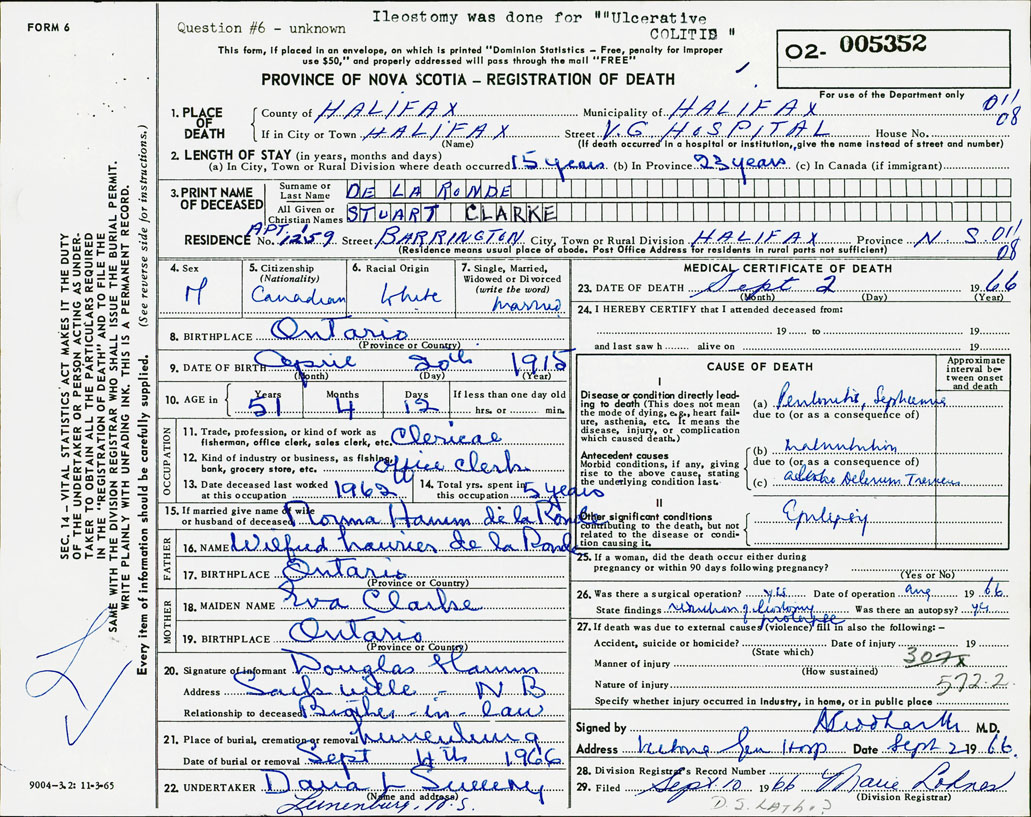 FORM 6
Ileostomy was done for ""Ulcerative
COLITIS "
Question #6 - unknown
This form, if placed in an envelope, on which is printed "Dominion Statistics – Free, penalty for improper
use $50," and properly addressed will pass through the mail "FREE"
PROVINCE OF NOVA SCOTIA – REGISTRATION OF DEATH
02- 005352
For use of the Department only
011
08
1. PLACE OF DEATH County of HALIFAX Municipality of HALIFAX
If in City or Town HALIFAX Street V.G. HOSPITAL House No.
(Name) (If death occurred in a hospital or institution, give the name instead of street and number)
2. LENGTH OF STAY (in years, months and days)
(a) In City, Town or Rural Division where death occurred 15 years (b) In Province 23 years (c) In Canada (if immigrant)
3. PRINT NAME OF DECEASED
Surname or Last Name DE LA RONDE
All Given or Christian Names STUART CLARKE
RESIDENCE APT. No. 1259 Street BARRINGTON City, Town or Rural Division HALIFAX Province N S 011
08
(Residence means usual place of abode. Post Office Address for residents in rural parts not sufficient)
4. Sex M
5. Citizenship (Nationality) Canadian
6. Racial Origin White
7. Single, Married, Widowed or Divorced (write the word) Married
8. BIRTHPLACE Ontario
(Province or Country)
9. DATE OF BIRTH April 20th 1915
(Month) (Day) (Year)
10. AGE in Years 51 Months 4 Days 12 If less than one day old
hrs. or min.
OCCUPATION
11. Trade, profession, or kind of work as fisherman, office clerk, sales clerk, etc. Clerical
12. Kind of industry or business, as fishing, bank, grocery store, etc. office clerk
13. Date deceased last worked at this occupation 1962
14. Total yrs. spent in this occupation 5 years
15. If married give name of wife or husband of deceased Norma Hamm de la Ronde
FATHER
16. NAME Wilfred Laurier de la Ronde
17. BIRTHPLACE Ontario
(Province or Country)
MOTHER
18. MAIDEN NAME Eva Clarke
19. BIRTHPLACE Ontario
(Province or Country)
20. Signature of informant Douglas Hamm
Address Sackville - N B
Relationship to deceased Brother-in-law
21. Place of burial, cremation or removal Lunenburg
Date of burial or removal Sept 4th 1966
22. UNDERTAKER Dana L Sweeny
(Name and address)
Lunenburg, N.S.
MEDICAL CERTIFICATE OF DEATH
23. DATE OF DEATH Sept 2 1966
(Month) (Day) (Year)
24. I HEREBY CERTIFY that I attended deceased from:
19 to 19
and last saw h alive on 19
CAUSE OF DEATH
Approximate interval between onset and death
I
Disease or condition directly leading to death (This does not mean the mode of dying, e.g., heart failure, asthenia, etc. It means the disease, injury, or complication which caused death.)
(a) Peritonitis, Septicemia
due to (or as a consequence of)
Antecedent causes
Morbid conditions, if any, giving rise to the above cause, stating the underlying condition last.
(b) malnutrition
due to (or as a consequence of)
(c) Delerium Tremens
II
Other significant conditions contributing to the death, but not related to the disease or condition causing it.
Epilepsy
25. If a woman, did the death occur either during pregnancy or within 90 days following pregnancy?
(Yes or No)
26. Was there a surgical operation? yes Date of operation Aug 1966
State findings revision of ileostomy prolapse Was there an autopsy? yes
27. If death was due to external causes (violence) fill in also the following: –
Accident, suicide or homicide? Date of injury 19
(State which)
Manner of injury 307X
(How sustained)
Nature of injury 572.2
Specify whether injury occurred in industry, in home, or in public place
Signed by M.D.
Address Victoria Gen Hosp Date Sept 2 1966
28. Division Registrar's Record Number
29. Filed Sept. 10 1966 Marie Lohnes
(Division Registrar)
SEC. 14 – VITAL STATISTICS ACT MAKES IT THE DUTY
OF THE UNDERTAKER OR PERSON ACTING AS UNDER-
TAKER TO OBTAIN ALL THE PARTICULARS REQUIRED
IN THE "REGISTRATION OF DEATH" AND TO FILE THE
SAME WITH THE DIVISION REGISTRAR WHO SHALL ISSUE THE BURIAL PERMIT.
WRITE PLAINLY WITH UNFADING INK. THIS IS A PERMANENT RECORD.
Every item of information should be carefully supplied. (See reverse side for instructions.)
9004–3.2: 11-3-65